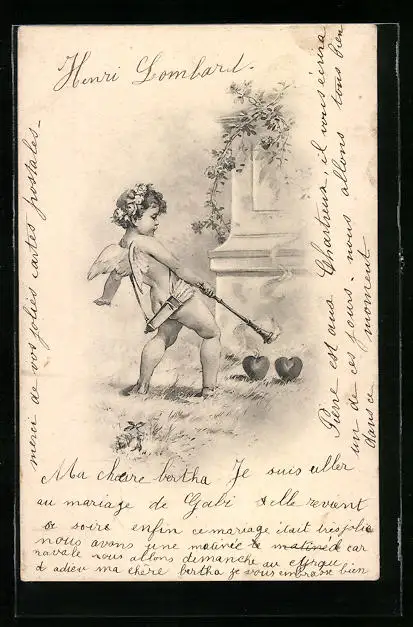 Henri Lombard.
merci de vos jolies cartes postales-
Pierre est aux Chartreux, il vous écrira
un de ces jours. nous allons tous bien
dans ce moment
Ma chère bertha Je suis aller
au mariage de Gabi elle revient
ce soire enfin ce mariage était très jolie
nous avons une matinée matinéd car
navale nous allons dimanche au cirque
d adieu ma chère bertha je vous embrasse bien